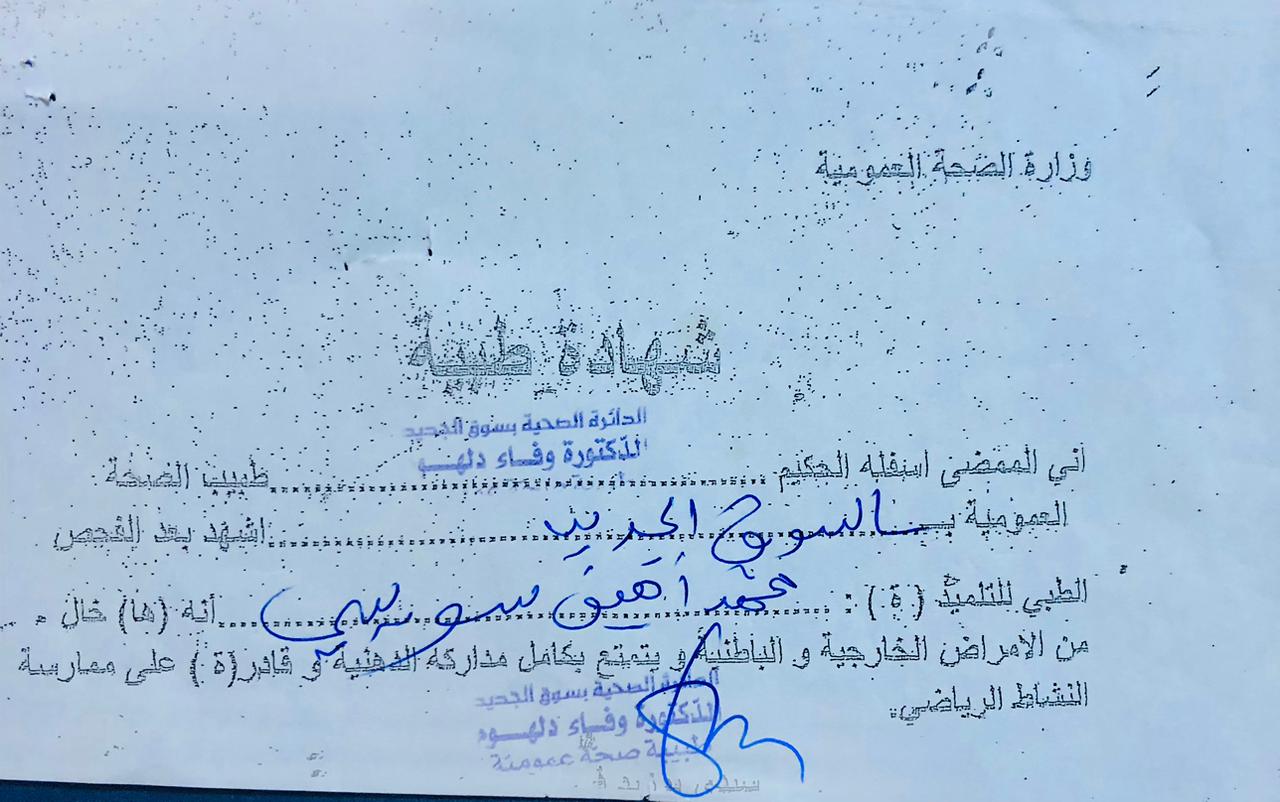 وزارة الصحة العمومية
شهادة طبية
الدائرة الصحية بسوق الجديد
الدكتورة وفاء دلهوم
اني الممضي اسفله الحكيم ........................ طبيب الصحة
العمومية بـ السوق الجديد ............ اشهد بعد الفحص
الطبي للتلميذ ( ة ) : محمد سويسي ...... أنه (ها) خال
من الامراض الخارجية و الباطنية و يتمتع بكامل مداركه الذهنية و قادر(ة ) على ممارسة
النشاط الرياضي.
الصحية بسوق الجديد
الدكتورة وفاء دلهوم
طبيبة صحة عمومية